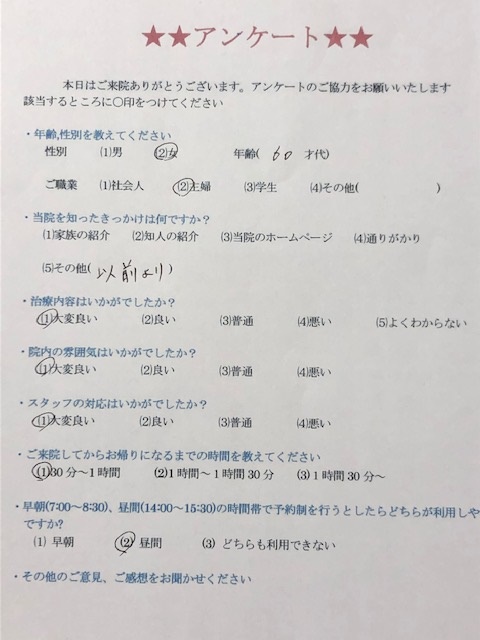 ★★アンケート★★
本日はご来院ありがとうございます。アンケートのご協力をお願いいたします
該当するところに〇印をつけてください
・年齢,性別を教えてください
性別 (1)男 (2)女 年齢( 60 才代)
ご職業 (1)社会人 (2)主婦 (3)学生 (4)その他( )
・当院を知ったきっかけは何ですか？
(1)家族の紹介 (2)知人の紹介 (3)当院のホームページ (4)通りがかり
(5)その他( 以前より )
・治療内容はいかがでしたか？
(1)大変良い (2)良い (3)普通 (4)悪い (5)よくわからない
・院内の雰囲気はいかがでしたか？
(1)大変良い (2)良い (3)普通 (4)悪い
・スタッフの対応はいかがでしたか？
(1)大変良い (2)良い (3)普通 (4)悪い
・ご来院してからお帰りになるまでの時間を教えてください
(1)30分～1時間 (2)1時間～1時間30分 (3)1時間30分～
・早朝(7:00～8:30)、昼間(14:00～15:30)の時間帯で予約制を行うとしたらどちらが利用しや
ですか?
(1) 早朝 (2) 昼間 (3) どちらも利用できない
・その他のご意見、ご感想をお聞かせください